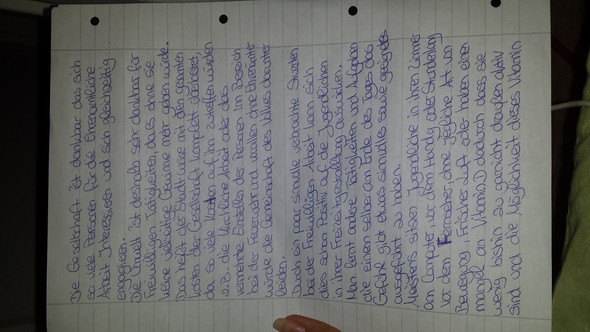 Die Gesellschaft ist dankbar das sich
so viele Personen für die Ehrenamtliche
Arbeit Interessieren und sich gleichzeitig
engagieren.
Die Umwelt ist deshalb sehr dankbar für
Freiwilligen Tätigkeiten, da es ohne sie
keine vielseitige Gesellschaft mehr geben würde.
Das heißt, der Staat müsse mit den gesamten
kosten der Gesellschaft komplett
da so viele Kosten auf ihn zukommen würden
z.B. die kirchliche Arbeit oder das
Einstellen der Personen im Bereich
bei der Feuerwehr und vor allem ohne Ehrenämter
würde die Gemeinschaft des Volkes darunter
leiden.
Durch ein paar sinnvolle verbrachte Stunden
bei der Freiwilligen Arbeit kann sich
dies schon Positiv auf die Jugendlichen
in ihrer Freizeitgestaltung auswirken.
Man lernt andere Tätigkeiten und Aufgaben
die einen selbst am Ende des Tages das
Gefühl gibt etwas sinnvolles sowie
ausgeführt zu haben.
Meistens sitzen Jugendliche in ihren Zimmer
am Computer, vor dem Handy oder Stundenlang
vor dem Fernseher, ohne jegliche Art von
Bewegung, Frischer Luft oder haben einen
mangel an Vitamin D dadurch dass sie
wenig bishin zu garnicht draußen aktiv
sind und die Möglichkeit dieses Vitamin